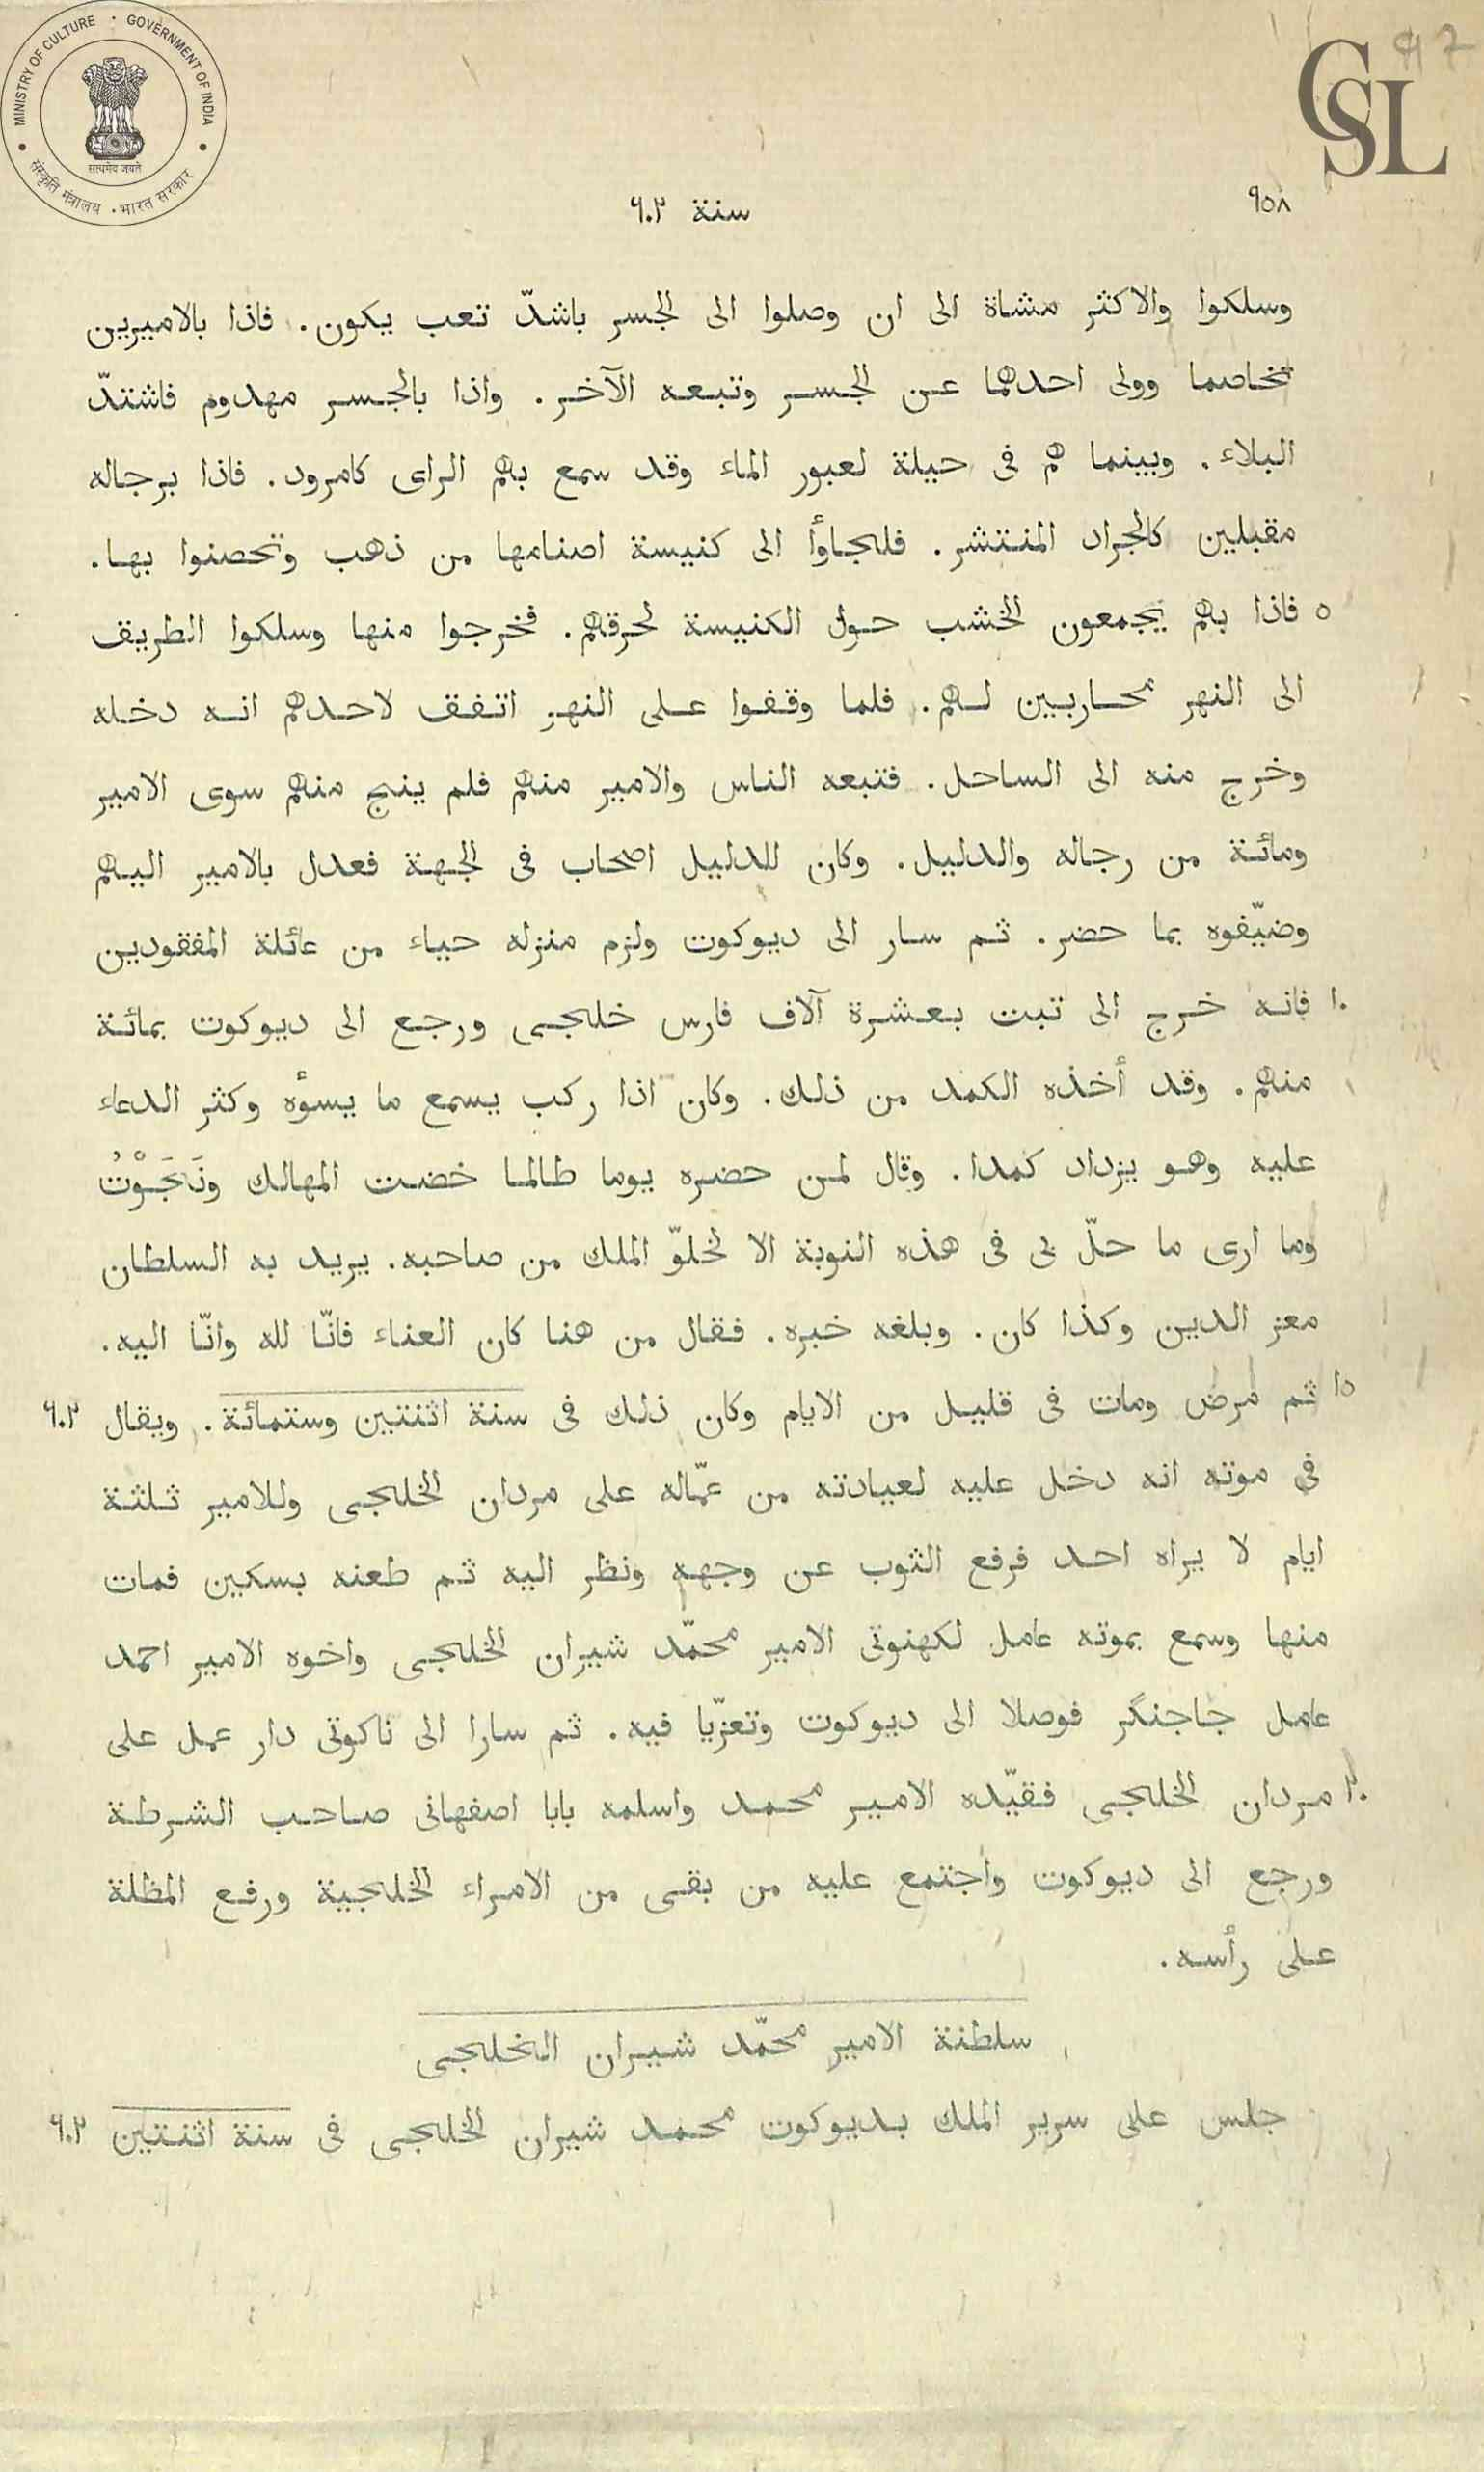 MINISTRY OF CULTURE · GOVERNMENT OF INDIA
सत्यमेव जयते
संस्कृति मंत्रालय · भारत सरकार
CSL
٩٥٨
سنة ٦٠٢
وسلكوا والاكثر مشاة الى ان وصلوا الى الجسر باشدّ تعب يكون. فاذا بالاميرين
تخاصما وولى احدهما عن الجسر وتبعه الآخر. واذا بالجسر مهدوم فاشتدّ
البلاء. وبينما هم فى حيلة لعبور الماء وقد سمع بهم الراى كامرود. فاذا برجاله
مقبلين كالجراد المنتشر. فلجاوأ الى كنيسة اصنامها من ذهب وتحصنوا بها.
٥ فاذا بهم يجمعون الخشب حول الكنيسة لحرقهم. فخرجوا منها وسلكوا الطريق
الى النهر محاربين لهم. فلما وقفوا على النهر اتفق لاحدهم انه دخله
وخرج منه الى الساحل. فتبعه الناس والامير منهم فلم ينج منهم سوى الامير
ومائة من رجاله والدليل. وكان للدليل اصحاب فى الجهة فعدل بالامير اليهم
وضيّفوه بما حضر. ثم سار الى ديوكوت ولزم منزله حياء من عائلة المفقودين
١٠ فانه خرج الى تبت بعشرة آلاف فارس خلجى ورجع الى ديوكوت بمائة
منهم. وقد أخذه الكمد من ذلك. وكان اذا ركب يسمع ما يسوٴه وكثر الدعاء
عليه وهو يزداد كمدا. وقال لمن حضره يوما طالما خضت المهالك ونَجَوْتُ
وما ارى ما حلّ بى فى هذه النوبة الا لخلوّ الملك من صاحبه. يريد به السلطان
معز الدين وكذا كان. وبلغه خبره. فقال من هنا كان العناء فانّا لله وانّا اليه.
١٥ ثم مرض ومات فى قليل من الايام وكان ذلك فى سنة اثنتين وستمائة. ويقال ٦٠٢
فى موته انه دخل عليه لعيادته من عمّاله على مردان الخلجى وللامير ثلثة
ايام لا يراه احد فرفع الثوب عن وجهه ونظر اليه ثم طعنه بسكين فمات
منها وسمع بموته عامل لكهنوتى الامير محمّد شيران الخلجى واخوه الامير احمد
عامل جاجنگر فوصلا الى ديوكوت وتعزّيا فيه. ثم سارا الى ناكوتى دار عمل على
٢٠ مردان الخلجى فقيّده الامير محمد واسلمه بابا اصفهانى صاحب الشرطة
ورجع الى ديوكوت واجتمع عليه من بقى من الامراء الخلجية ورفع المظلة
على رأسه.
سلطنة الامير محمّد شيران الخلجى
جلس على سرير الملك بديوكوت محمد شيران الخلجى فى سنة اثنتين ٦٠٢